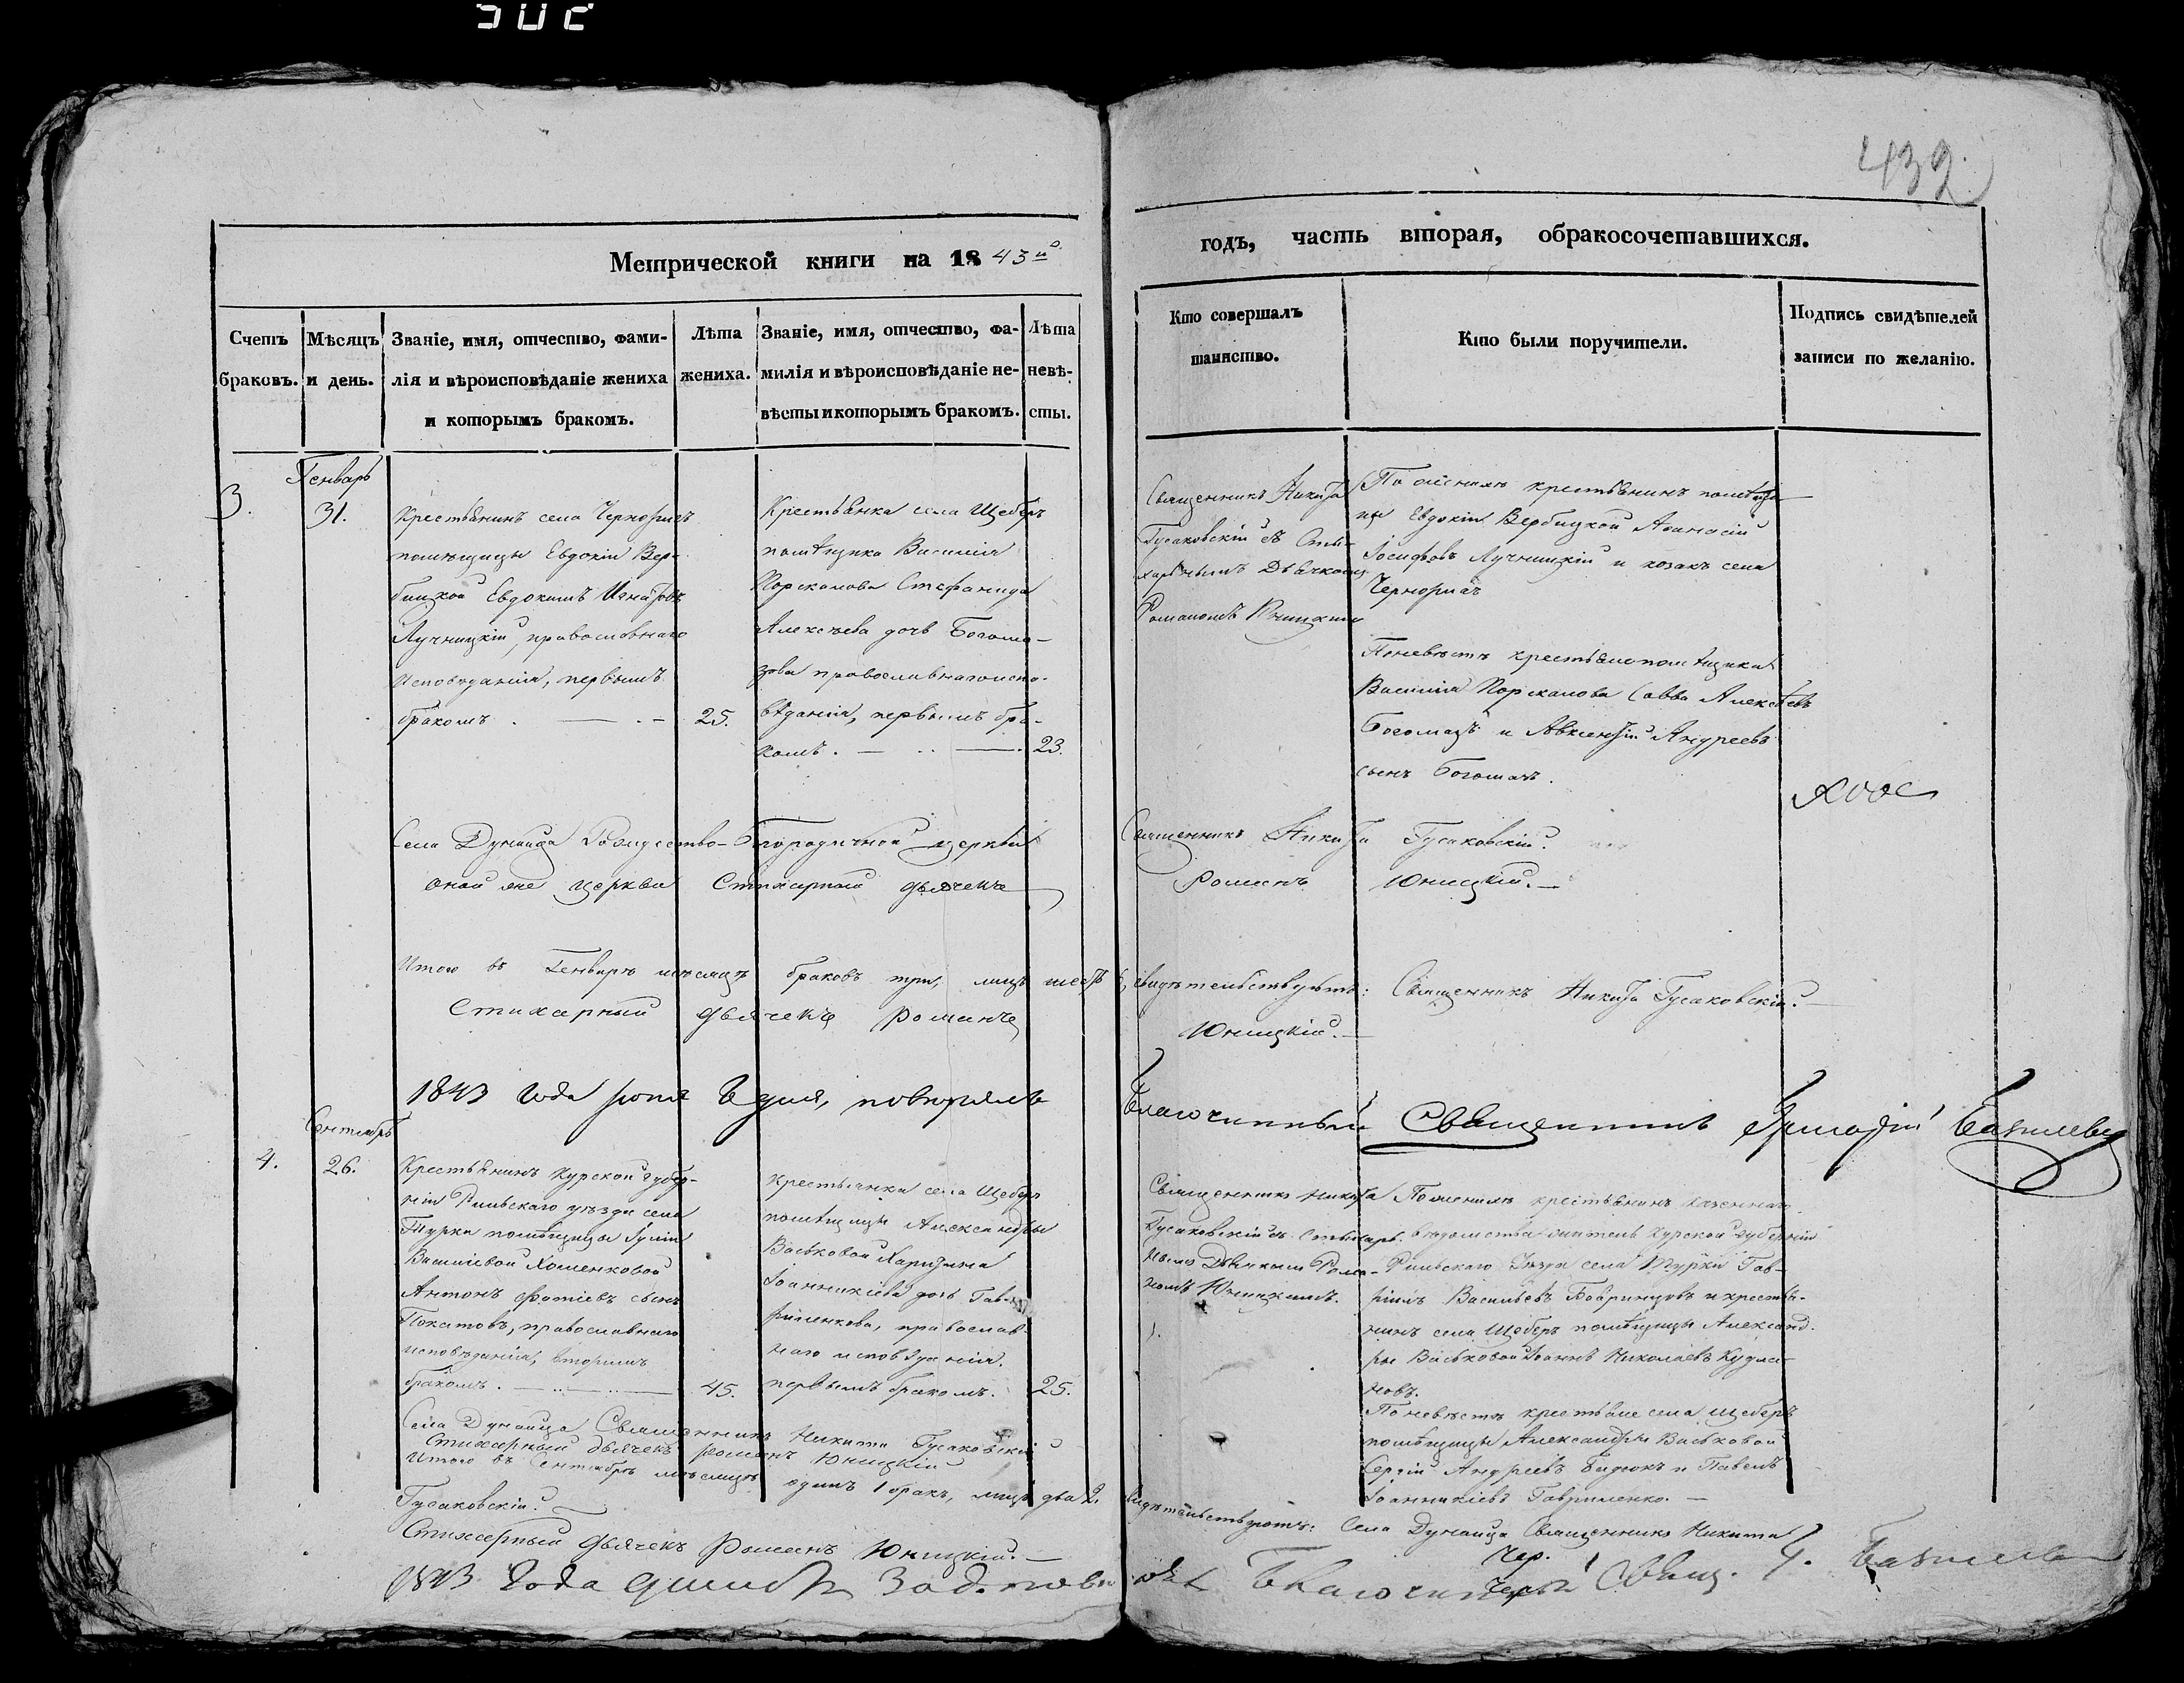 432.
Метрической книги на 1843й
годъ, часть вторая, обракосочетавшихся.
Счетъ браковъ.
Мѣсяцъ и день.
Званіе, имя, отчество, фами-
лія и вѣроисповѣданіе жениха
и которымъ бракомъ.
Лѣта
жениха.
Званіе, имя, отчество, фа-
милія и вѣроисповѣданіе не-
вѣсты и которымъ бракомъ.
Лѣта
невѣ-
сты.
Кто совершалъ
таинство.
Кто были поручители.
Подпись свидѣтелей
записи по желанію.
3.
Генварь
31.
Крестьянинъ села Чернориг
помѣщицы Евдокіи Вер-
бицкой Евдокимъ Игнатовъ
Лучницкій, православнаго
исповѣданія, первымъ
бракомъ. 25.
Крестьянка села Щебръ
помѣщика Василія
Порскалова Стефанида
Алексѣева дочь Богома-
зова православнаго испо-
вѣданія, первымъ бра-
комъ. 23.
Священникъ Никита
Гусаковскій съ Сти-
харнымъ Дьячкомъ
Романомъ Юницкимъ
По женихѣ крестьянинъ помѣщи-
цы Евдокіи Вербицкой Афанасій
Іосифовъ Лучницкій и козакъ села
Чернориг
По невѣстѣ крестьяне помѣщика
Василія Порскалова Савва Алексѣевъ
Богомазъ и Авксентій Андреевъ
сынъ Богомазъ.
Села Дунайца Рождество-Богородичной церкви Священникъ Никита Гусаковскій.
оной же церкви Стихарный дьячекъ Романъ Юницкій.
Итого въ Генварѣ мѣсяцѣ браковъ три, лицъ шесть 6, свидѣтельствуютъ: Священникъ Никита Гусаковскій.
Стихарный дьячекъ Романъ Юницкій.
1843 года дня, повѣрялъ Благочинный Священникъ Григорій Базилевичъ
4.
Сентябрь
26.
Крестьянинъ Курской губер-
ніи Рыльскаго уѣзда села
Турки помѣщицы Іуліи
Василіевой Хоменковой
Антонъ Фотіевъ сынъ
Покатовъ, православнаго
исповѣданія, вторымъ
бракомъ. 45.
Крестьянка села Щебръ
помѣщицы Александры
Васьковой Харитина
Іоанникіева дочь Гав-
риленкова, православ-
наго исповѣданія.
первымъ бракомъ. 25.
Священникъ Никита
Гусаковскій съ Стихар-
нымъ Дьячкомъ Рома-
номъ Юницкимъ.
По женихѣ крестьянинъ казеннаго
вѣдомства Курской губерніи
Рыльскаго Уѣзда села Турки Гав-
ріилъ Васильевъ Бавринцовъ и крестья-
нинъ села Щебръ помѣщицы Александ-
ры Васьковой Іоаннъ Николаевъ
новъ.
По невѣстѣ крестьяне села Щебръ
помѣщицы Александры Васьковой
Сергій Андреевъ Бидюкъ и Павелъ
Іоанникіевъ Гавриленко.
Села Дунайца Священникъ Никита Гусаковскій
Стихарный дьячекъ Романъ Юницкій
Итого въ Сентябрѣ мѣсяцѣ одинъ 1 бракъ, лицъ два 2. свидѣтельствуютъ: Села Дунайца Священникъ Никита
Гусаковскій.
Стихарный дьячекъ Романъ Юницкій.
1843 года Благочинный Свящ. Г. Базилевичъ